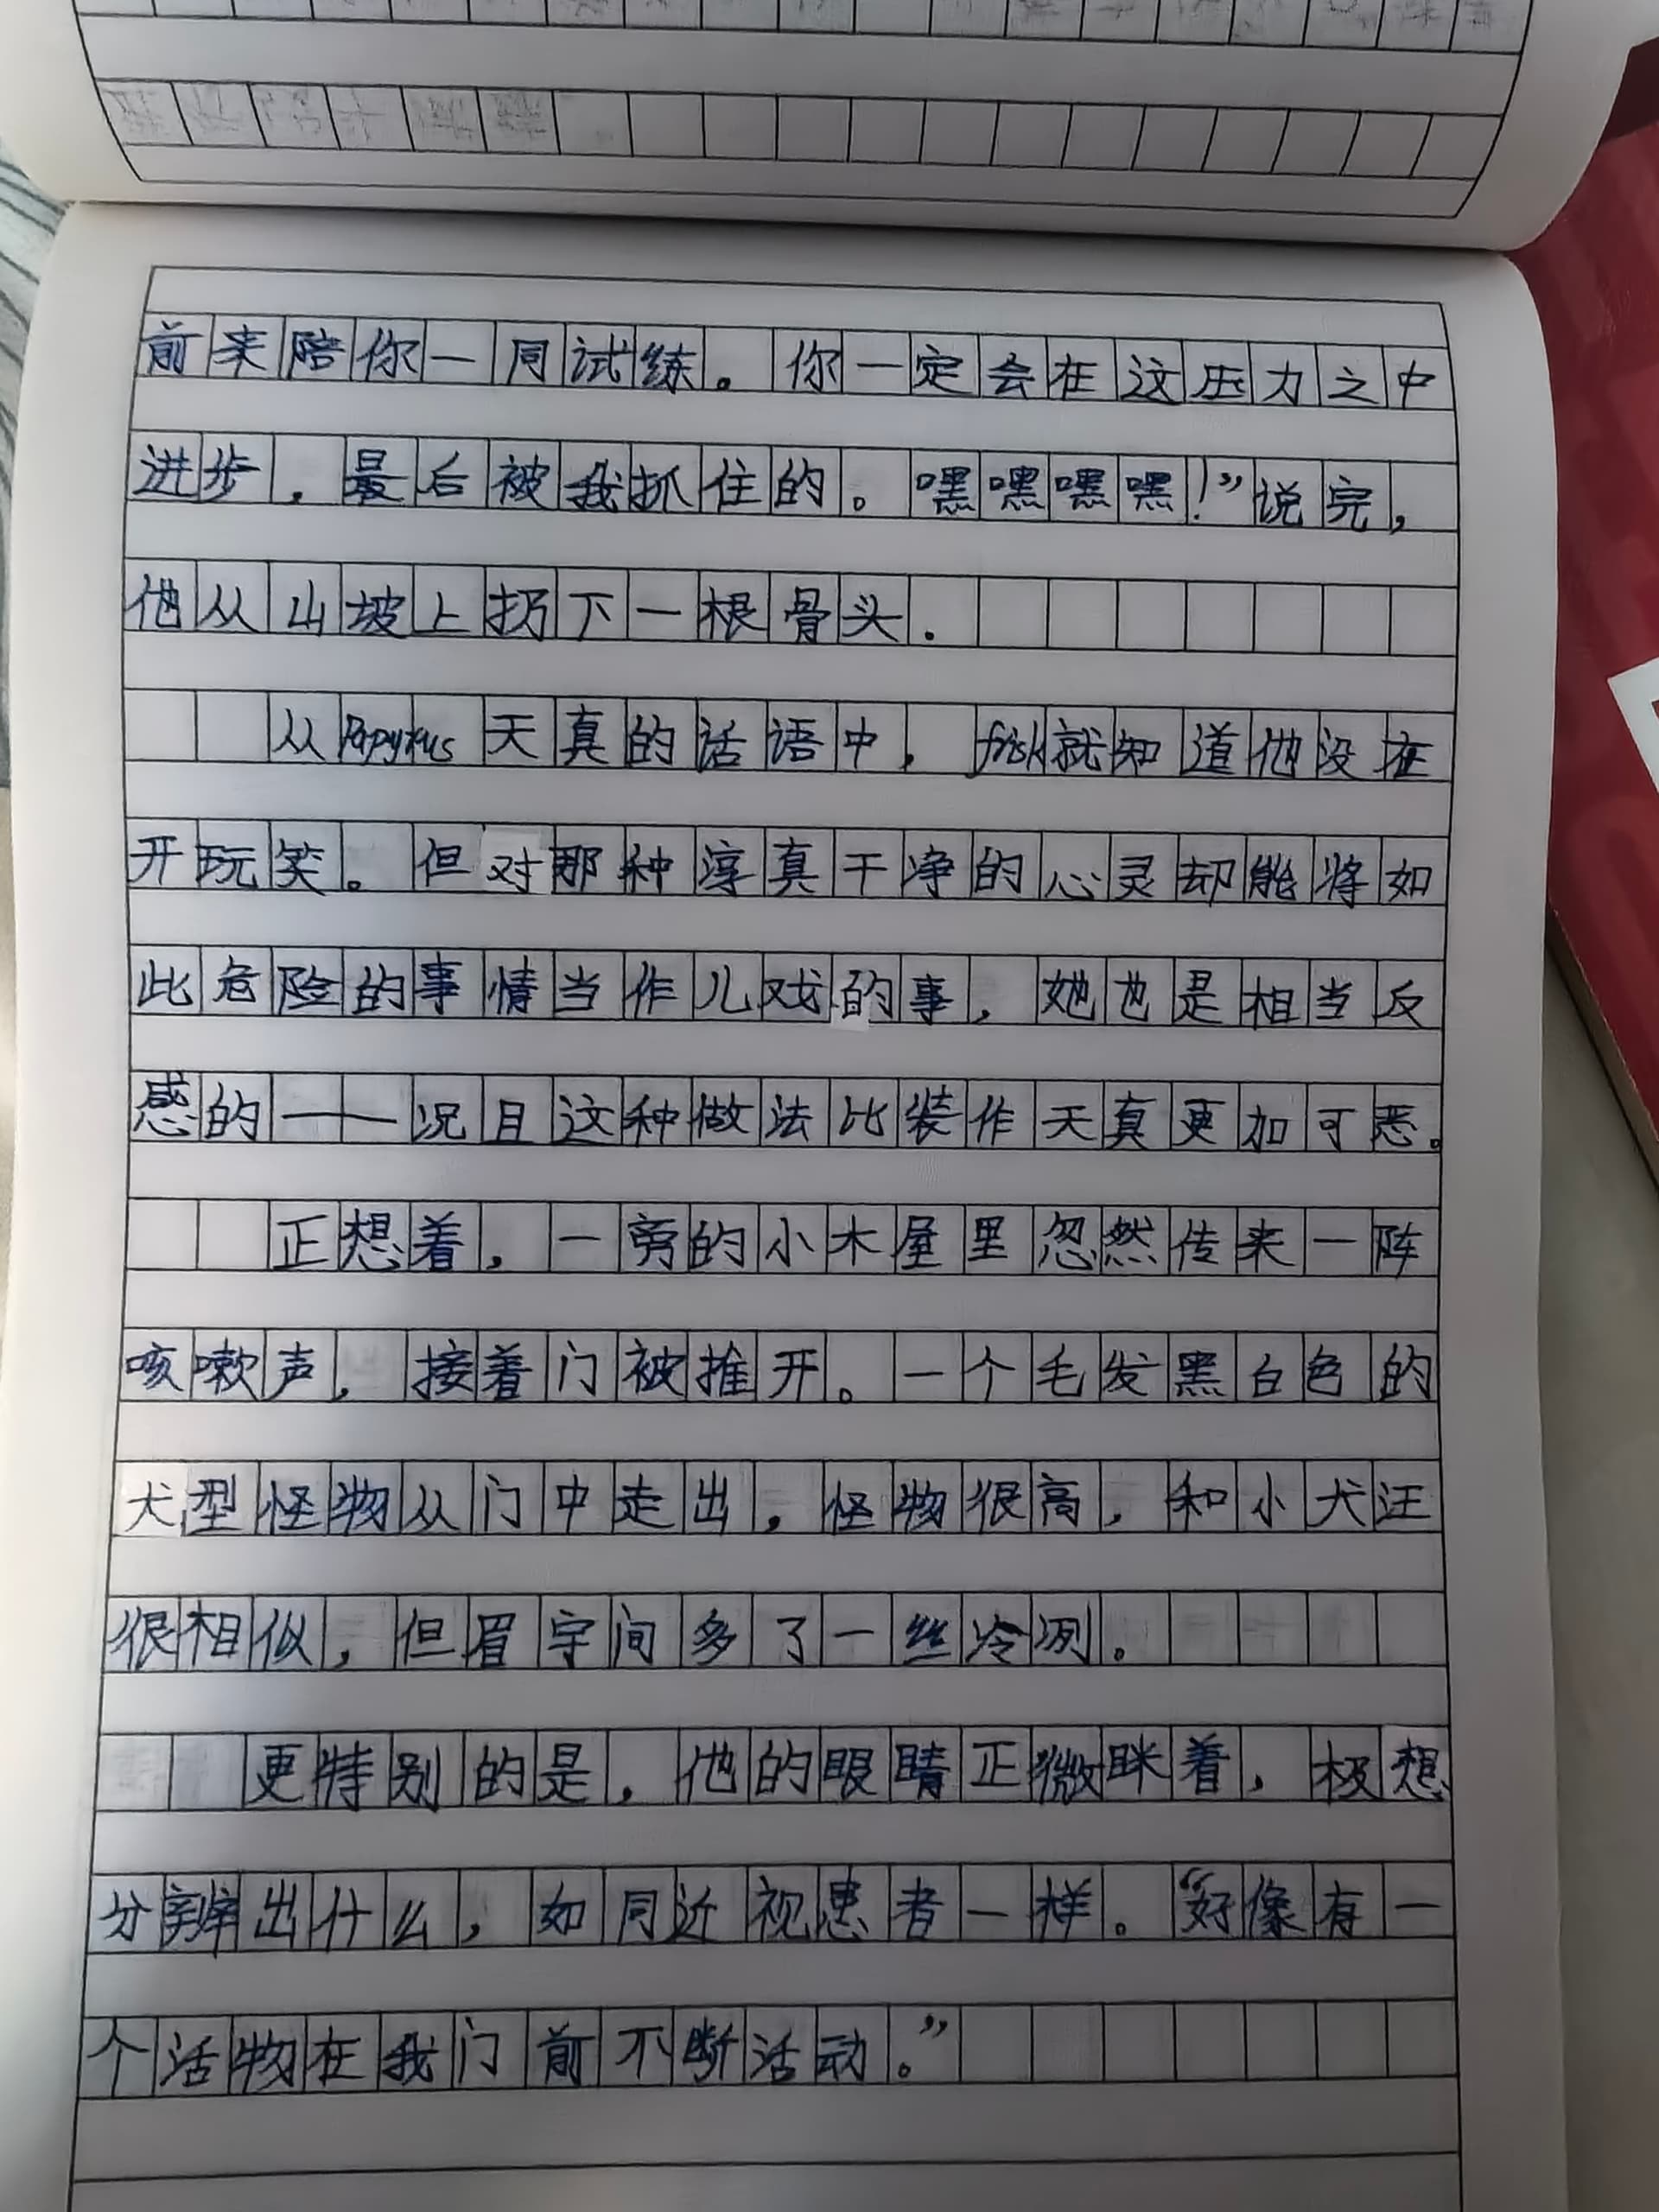 前来陪你一同试练。你一定会在这压力之中
进步，最后被我抓住的。嘿嘿嘿嘿！”说完，
他从山坡上扔下一根骨头．
从Papyrus天真的话语中，frisk就知道他没在
开玩笑。但对那种淳真干净的心灵却能将如
此危险的事情当作儿戏的事，她也是相当反
感的——况且这种做法比装作天真更加可恶。
正想着，一旁的小木屋里忽然传来一阵
咳嗽声，接着门被推开。一个毛发黑白色的
犬型怪物从门中走出，怪物很高，和小犬汪
很相似，但眉宇间多了一丝冷冽。
更特别的是，他的眼睛正微眯着，极想
分辨出什么，如同近视患者一样。“好像有一
个活物在我门前不断活动。”